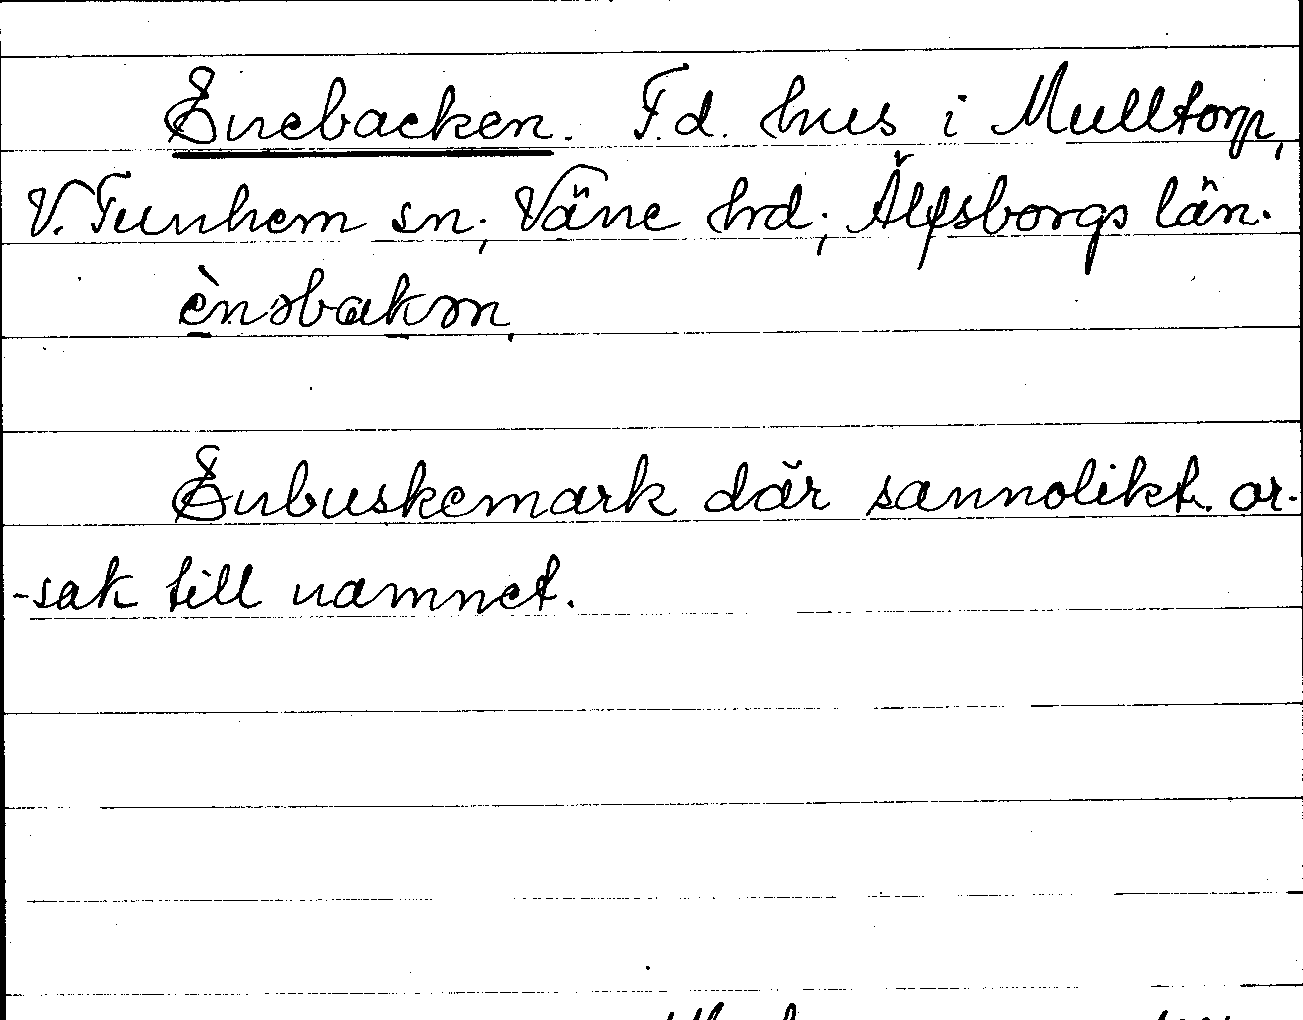 Enebacken. F.d. hus i Mulltorp,
V. Tunhem sn; Väne hd; Älfsborgs län.
ènəbakən,
Enbuskemark där sannolikt or-
-sak till namnet.